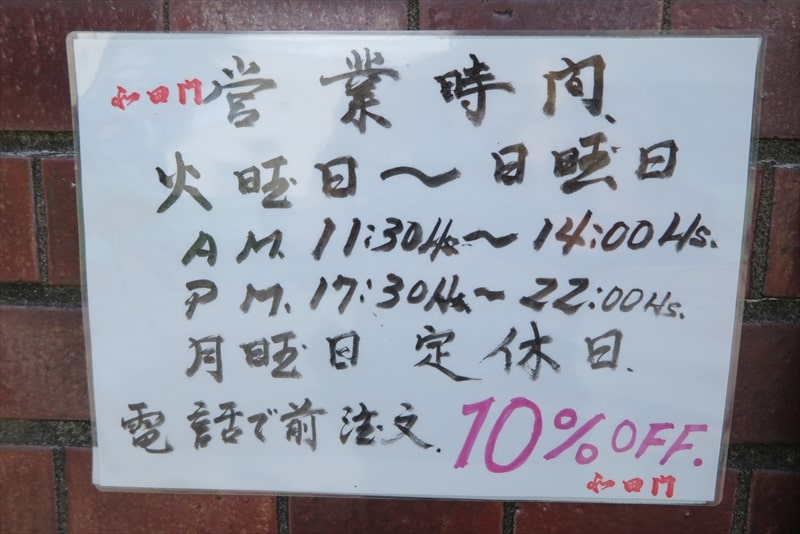 和田門 営業時間
火曜日～日曜日
A M. 11:30Hs～14:00Hs.
P M. 17:30Hs～22:00Hs.
月曜日 定休日.
電話で前注文. 10%OFF.
和田門